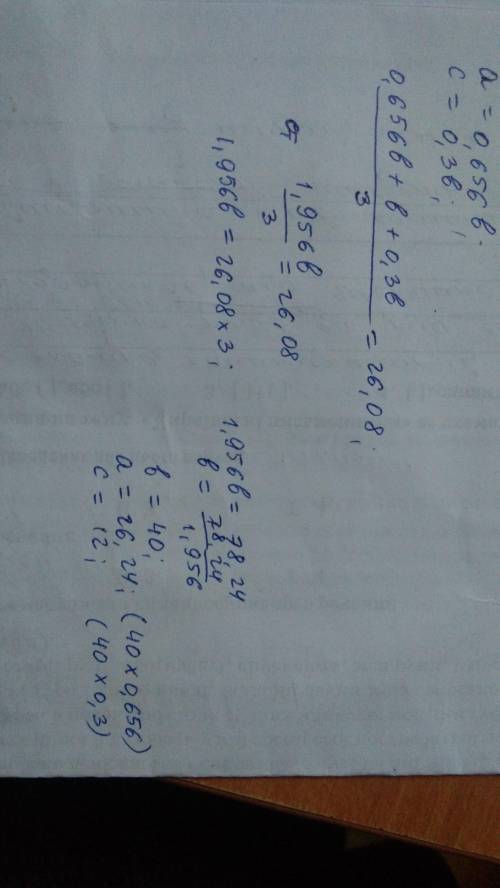 a = 0,656 в.
c = 0,3в. ;
0,656в + в + 0,3в
3
= 26,08 ;
1,956в
3
= 26,08
1,956в = 26,08×3 ;
1,956в = 78,24
в = 78,24
1,956
в = 40;
a = 26,24; (40×0,656)
c = 12; (40×0,3)